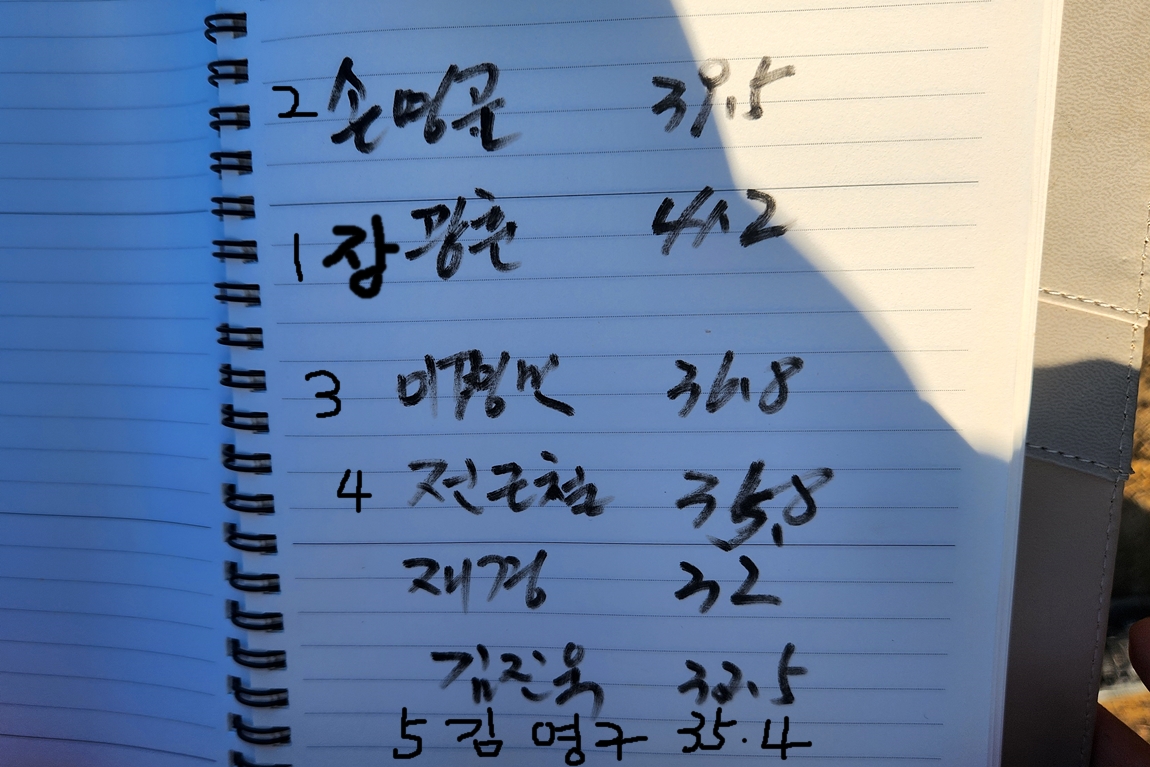 2 손명곤 39.5
1 장광훈 41.2
3 이평민 36.8
4 전근철 35.8
재경 32
김진욱 32.5
5 김영구 35.4